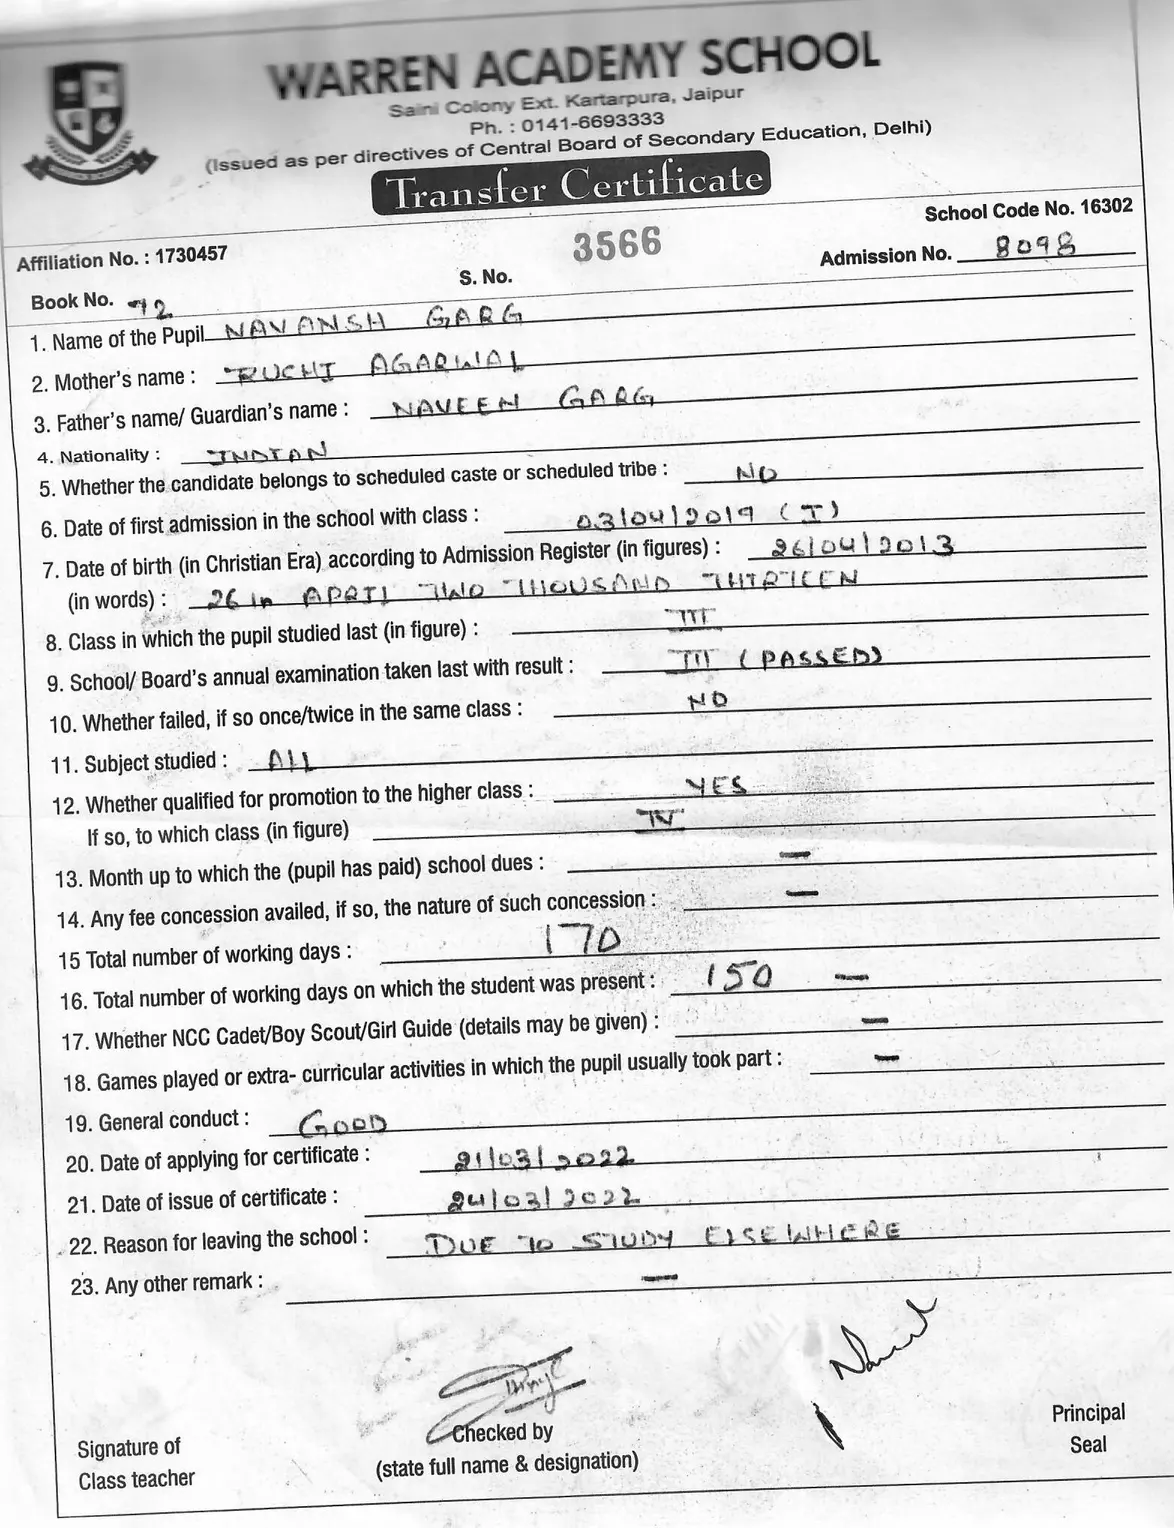 WARREN ACADEMY SCHOOL
Saini Colony Ext. Kartarpura, Jaipur
Ph. : 0141-6693333
(Issued as per directives of Central Board of Secondary Education, Delhi)
Transfer Certificate
Affiliation No. : 1730457 3566 School Code No. 16302
Book No. 72 S. No. Admission No. 8098
1. Name of the Pupil NAVANSH GARG
2. Mother's name : RUCHI AGARWAL
3. Father's name/ Guardian's name : NAVEEN GARG
4. Nationality : INDIAN
5. Whether the candidate belongs to scheduled caste or scheduled tribe : NO
6. Date of first admission in the school with class : 03/04/2019 (I)
7. Date of birth (in Christian Era) according to Admission Register (in figures) : 26/04/2013
(in words) : 26 th APRIL TWO THOUSAND THIRTEEN
8. Class in which the pupil studied last (in figure) : III
9. School/ Board's annual examination taken last with result : III (PASSED)
10. Whether failed, if so once/twice in the same class : NO
11. Subject studied : ALL
12. Whether qualified for promotion to the higher class : YES
If so, to which class (in figure) IV
13. Month up to which the (pupil has paid) school dues : —
14. Any fee concession availed, if so, the nature of such concession : —
15 Total number of working days : 170
16. Total number of working days on which the student was present : 150 —
17. Whether NCC Cadet/Boy Scout/Girl Guide (details may be given) : —
18. Games played or extra- curricular activities in which the pupil usually took part : —
19. General conduct : GOOD
20. Date of applying for certificate : 21/03/2022
21. Date of issue of certificate : 24/03/2022
22. Reason for leaving the school : DUE TO STUDY ELSEWHERE
23. Any other remark : —
Signature of
Class teacher
Checked by
(state full name & designation)
Principal
Seal